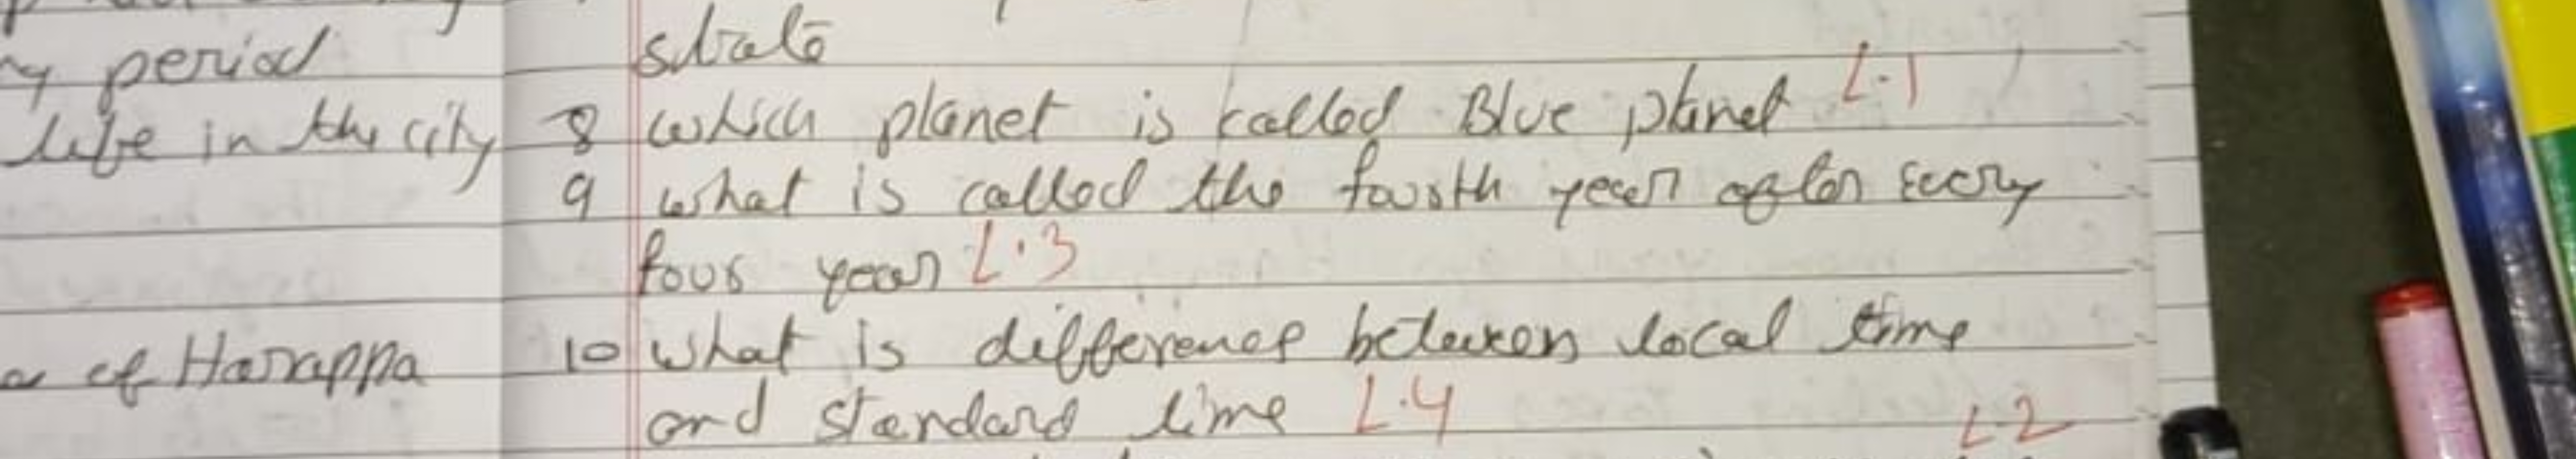 period
life in the city
of Harappa
state
8 which planet is called Blue planet L.1
9 what is called the fourth year after every
four year L.3
10 what is difference between local time
and standard time L.4
L2